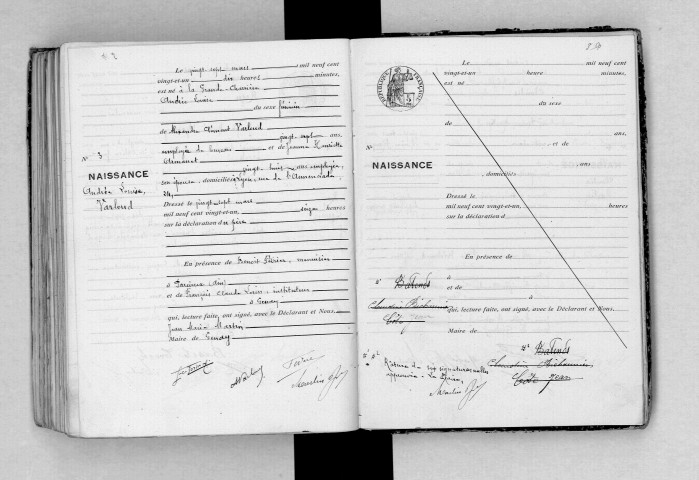 Le vingt sept mars mil neuf cent
vingt-et-un, dix heures minutes,
est né à la Grande Charrière
Andrée Louise
du sexe féminin
de Alexandre Clément Varloud
vingt sept ans
employé de bureau et de Jeanne Henriette
vingt huit ans employée
son épouse, domiciliés Lyon, rue de l'Annonciade
24,
Dressé le vingt sept mars
mil neuf cent vingt-et-un, seize heures
sur la déclaration du père
N° 3
NAISSANCE
Andrée Louise
Varloud
En présence de Benoit Perrier, menuisier
à Parcieux (Ain)
et de François Claude Louis, instituteur
à Genay
qui, lecture faite, ont signé, avec le Déclarant et Nous.
Jean Marie Martin
Maire de Genay
Varloud
Martin
Le mil neuf cent
vingt-et-un heure minutes,
est né
RÉPUBLIQUE FRANÇAISE
du sexe
de
ans,
et de
N°
NAISSANCE
, ans
, domiciliés
Dressé le
mil neuf cent vingt-et-un, heures
sur la déclaration d
En présence de
à
et de
à
qui, lecture faite, ont signé, avec le Déclarant et Nous.
Maire de
Côte Jean
Rature de six signatures nulles
approuvée
Martin
Côte Jean